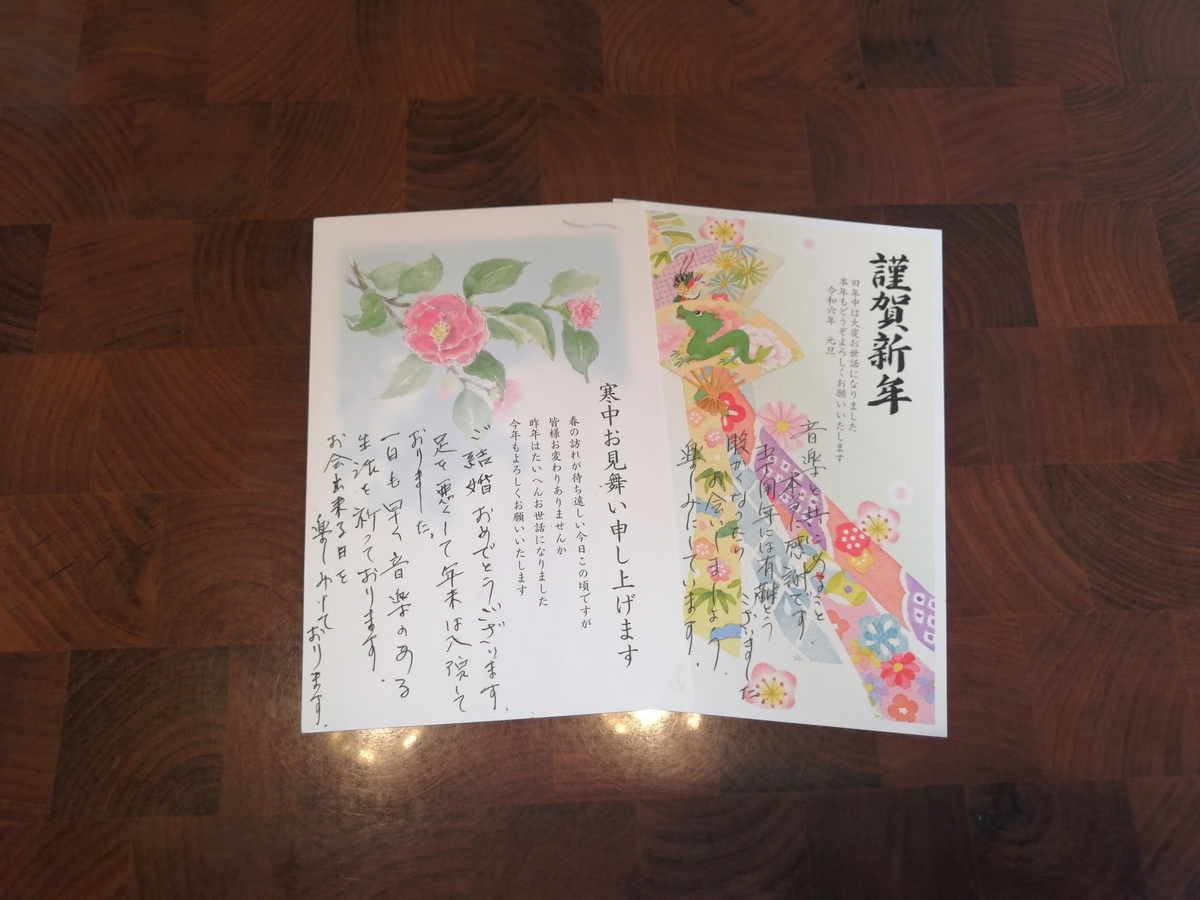 謹賀新年
旧年中は大変お世話になりました
本年もどうぞよろしくお願いいたします
令和六年 元旦
音楽と共にあること
本当に感謝です。
五十周年には有難とう
ございました。
暖かくなったら
お会いしましょう。
楽しみにしています。
寒中お見舞い申し上げます
春の訪れが待ち遠しい今日この頃ですが
皆様お変わりありませんか
昨年はたいへんお世話になりました
今年もよろしくお願いいたします
ご結婚おめでとうございます。
足を悪くして年末は入院して
おりました。
一日も早く音楽のある
生活を祈っております。
お会出来る日を
楽しみにして
おります。